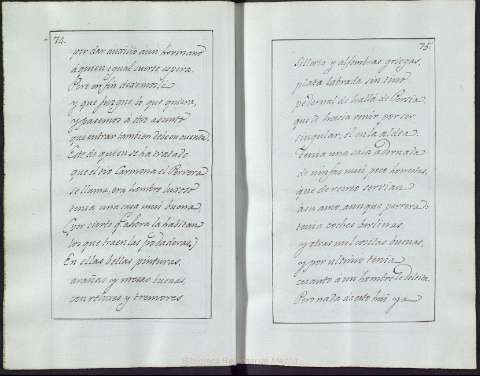 74.
por dar auxilio a un hermano
à quien igual suerte espera.
Pero en fin dexemosle
y que juzgue lo que quiera,
y pasemos a otro asunto
que entrar tambien debe en cuenta.
Este de quien se ha tratado
que el tio Carmona el Perrera
se llama, era hombre
tenia una casa mui buena,
(por cierto q.e ahora la habitan
los que traen las podaderas,)
En ellas bellas pinturas,
arañas y mesas buenas,
con relojes y tremores
75.
silleria y alfombras griegas,
plata labrada sin tino
pedernal de hallà de Persia,
que lo hacia venir por ser
singular, el mla aldea.
Tenia una sala adornada
de ninfas mui poco honestas,
que de
à su amo, aunque perrera:
tenia coches berlinas,
y otras mil cosillas buenas,
y por ultimo tenia
cuanto a un hombre
Pero nada de esto hai ya
Biblioteca Regional de Madrid